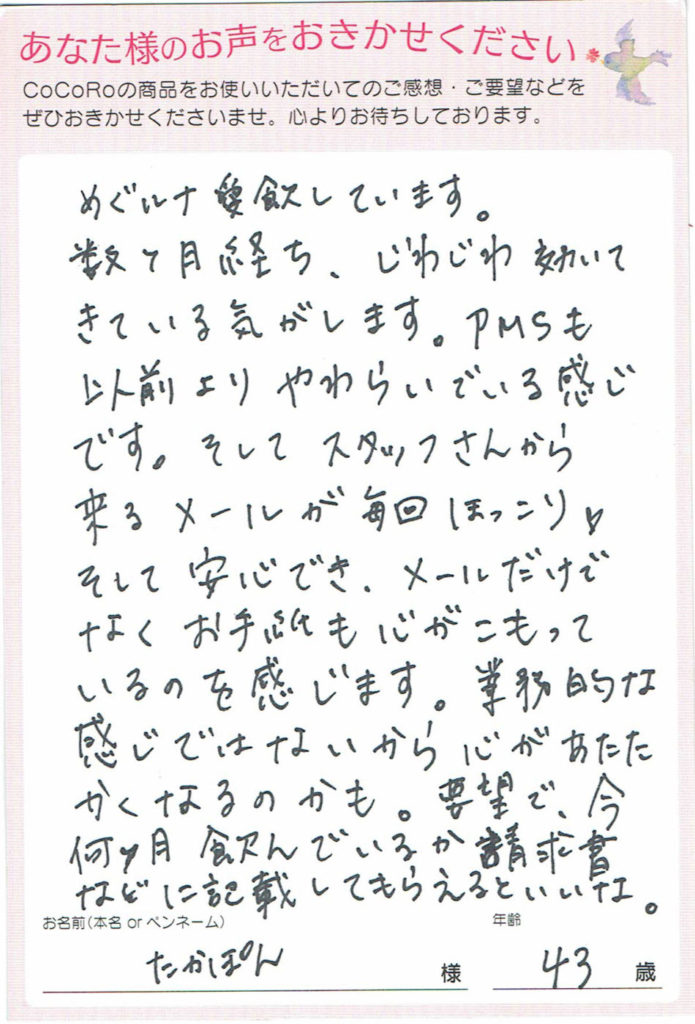 あなた様のお声をおきかせください
CoCoRoの商品をお使いいただいてのご感想・ご要望などを
ぜひおきかせくださいませ。心よりお待ちしております。
めぐルナ愛飲しています。
数ヶ月経ち、じわじわ効いて
きている気がします。PMSも
以前よりやわらいでいる感じ
です。そしてスタッフさんから
来るメールが毎回ほっこり♥
そして安心でき、メールだけで
なくお手紙も心がこもって
いるのを感じます。業務的な
感じではないから心があたた
かくなるのかも。要望で、今
何ヶ月飲んでいるか請求書
などに記載してもらえるといいな。
お名前(本名 or ペンネーム)
年齢
たかぽん 様 43 歳